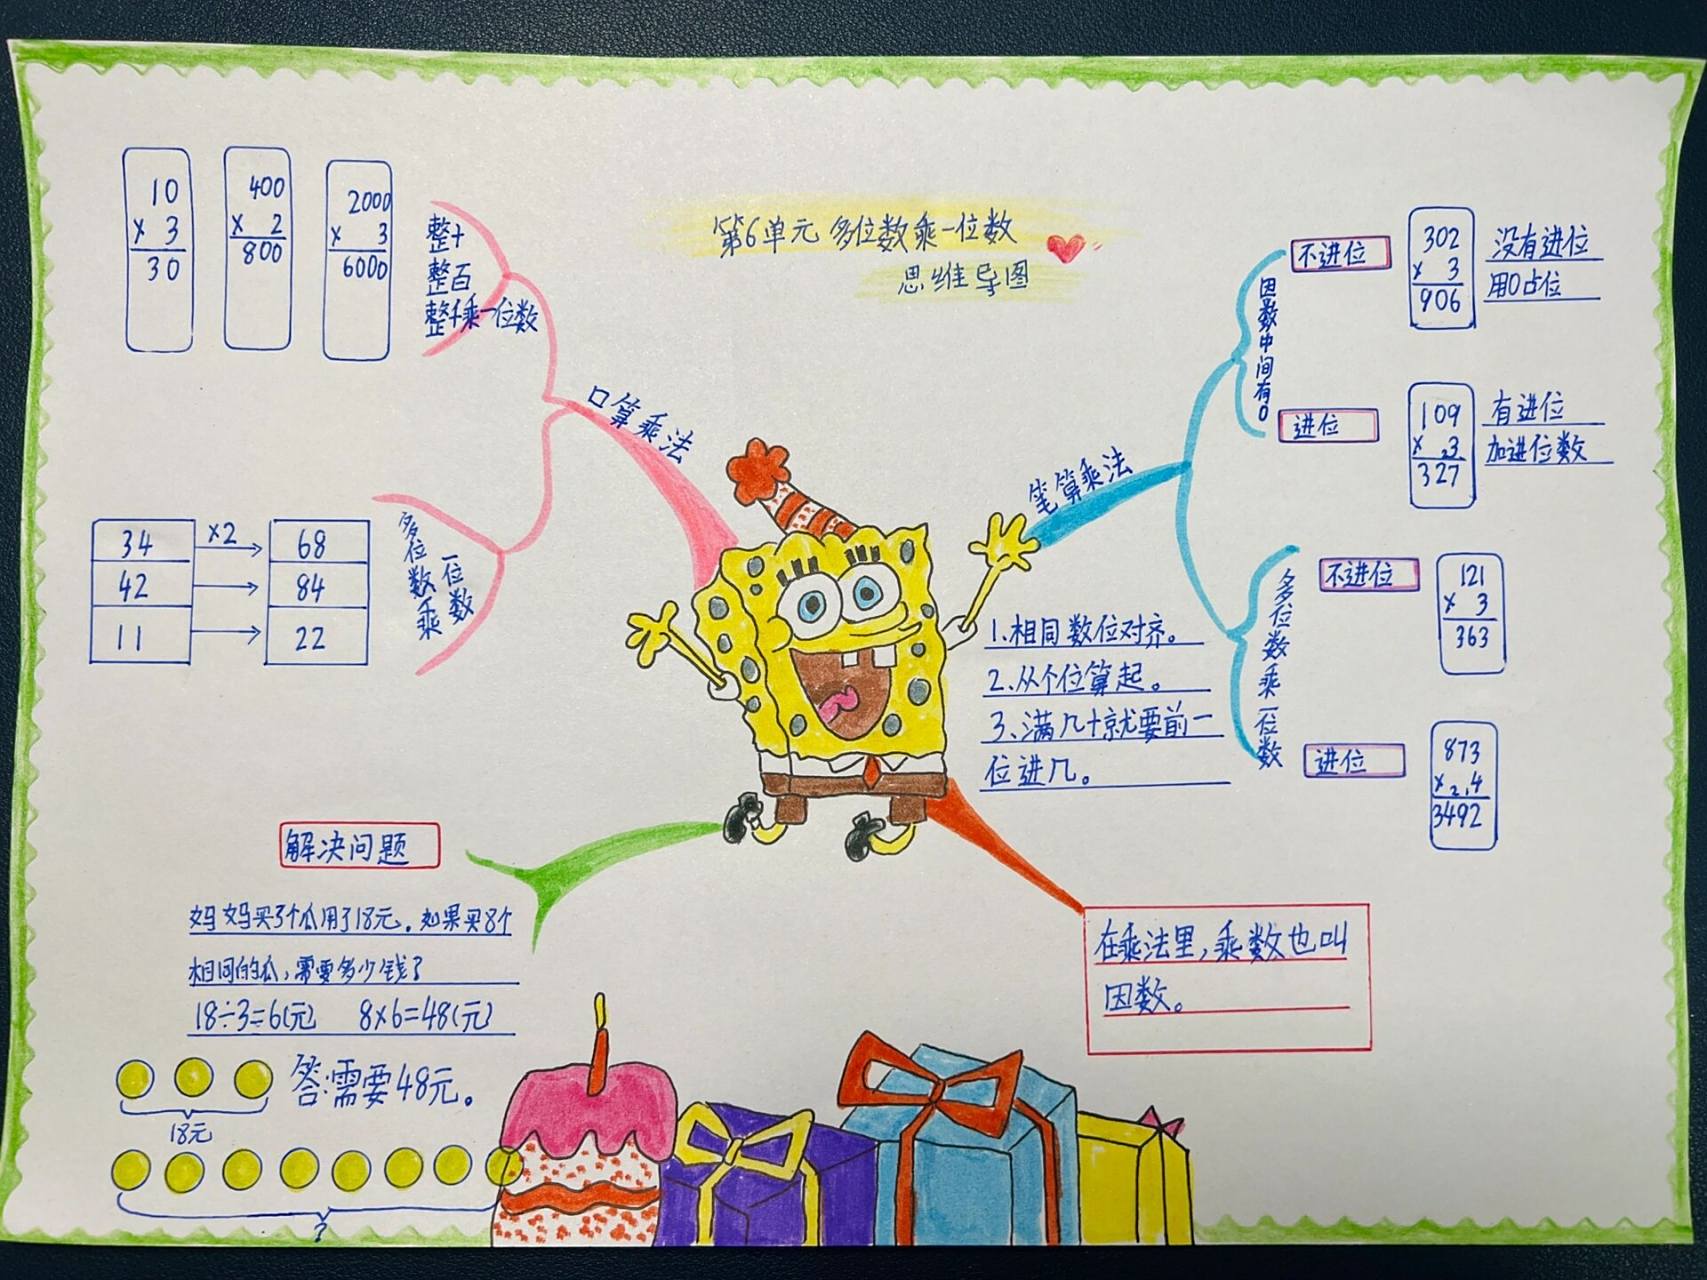 第6单元 多位数乘一位数
思维导图
口算乘法
整十
整百
整千乘一位数
10
× 3
30
400
× 2
800
2000
× 3
6000
多位数乘
一位数
34 ×2 68
42 84
11 22
笔算乘法
因数中间有0
不进位
302
× 3
906
没有进位
用0占位
进位
109
× 2 3
327
有进位
加进位数
多位数乘一位数
不进位
121
× 3
363
进位
873
× 2 1 4
3492
1.相同数位对齐。
2.从个位算起。
3.满几十就要前一
位进几。
解决问题
妈妈买3个瓜用了18元。如果买8个
相同的瓜,需要多少钱?
18÷3=6(元) 8×6=48(元)
答:需要48元。
18元
?
在乘法里,乘数也叫
因数。